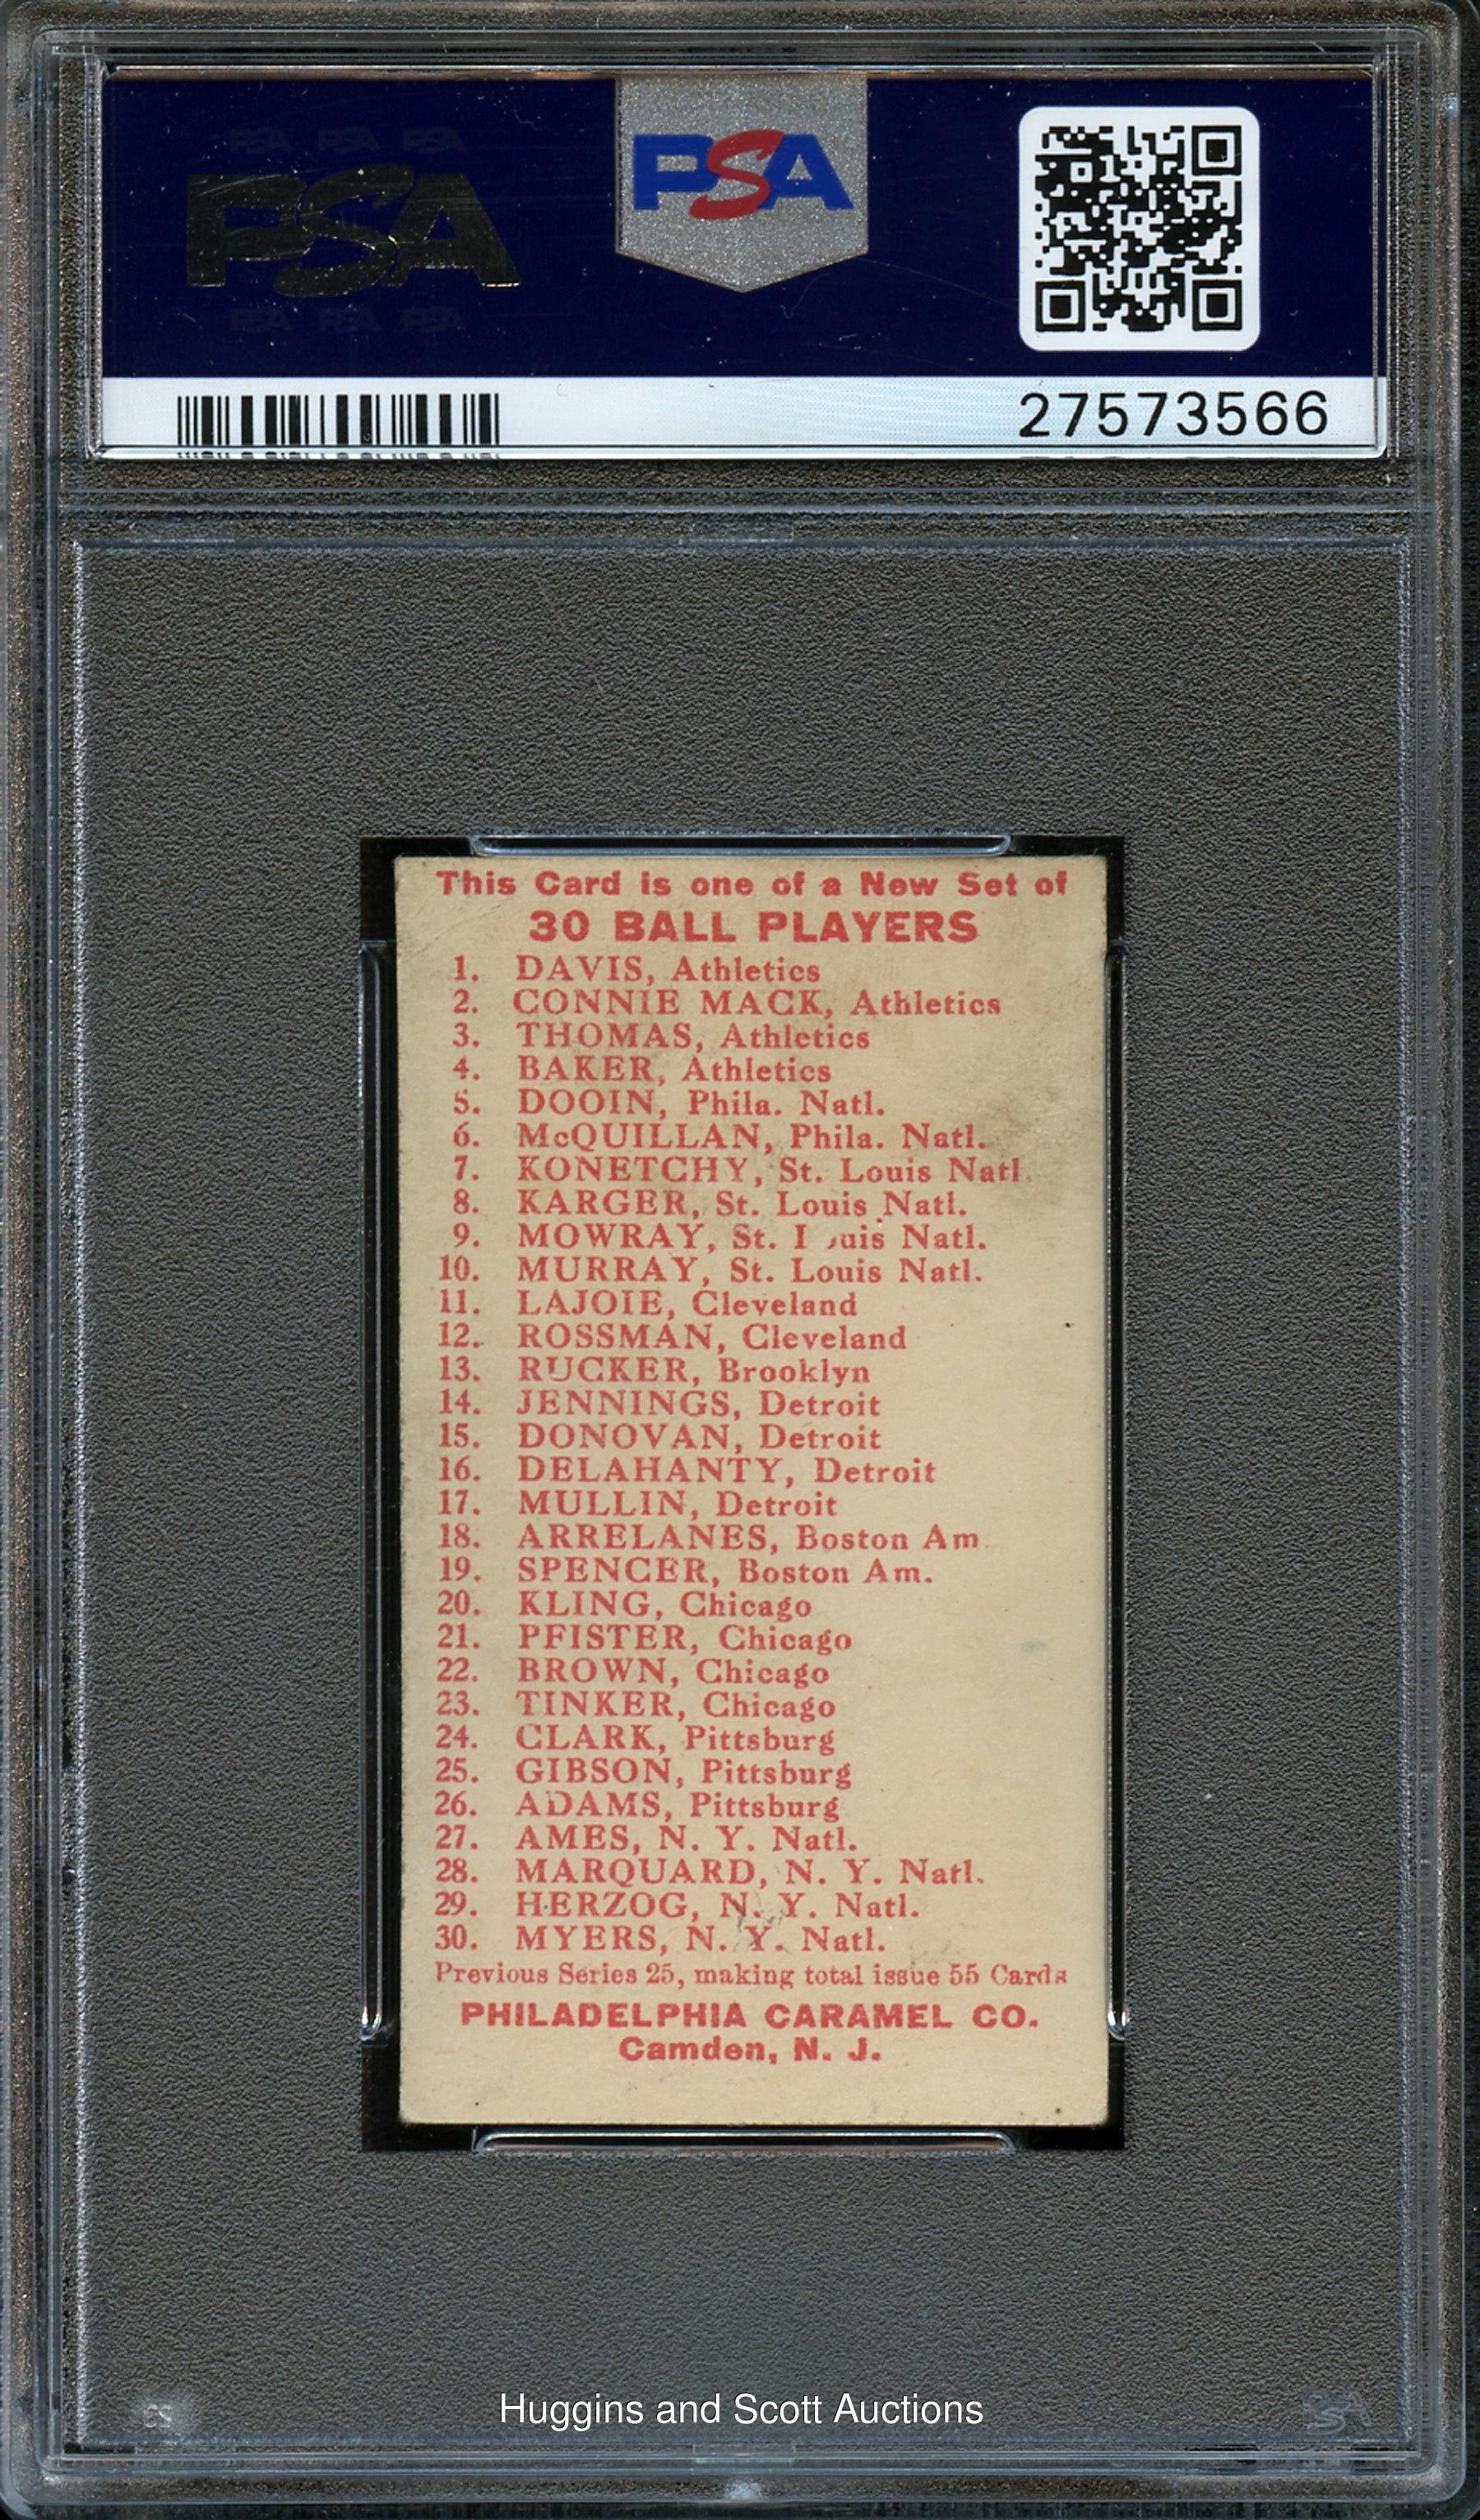 PSA PSA PSA
PSA
PSA PSA PSA
PSA
27573566
This Card is one of a New Set of
30 BALL PLAYERS
1. DAVIS, Athletics
2. CONNIE MACK, Athletics
3. THOMAS, Athletics
4. BAKER, Athletics
5. DOOIN, Phila. Natl.
6. McQUILLAN, Phila. Natl.
7. KONETCHY, St. Louis Natl.
8. KARGER, St. Louis Natl.
9. MOWRAY, St. Louis Natl.
10. MURRAY, St. Louis Natl.
11. LAJOIE, Cleveland
12. ROSSMAN, Cleveland
13. RUCKER, Brooklyn
14. JENNINGS, Detroit
15. DONOVAN, Detroit
16. DELAHANTY, Detroit
17. MULLIN, Detroit
18. ARRELANES, Boston Am
19. SPENCER, Boston Am.
20. KLING, Chicago
21. PFISTER, Chicago
22. BROWN, Chicago
23. TINKER, Chicago
24. CLARK, Pittsburg
25. GIBSON, Pittsburg
26. ADAMS, Pittsburg
27. AMES, N. Y. Natl.
28. MARQUARD, N. Y. Natl.
29. HERZOG, N. Y. Natl.
30. MYERS, N. Y. Natl.
Previous Series 25, making total issue 55 Cards
PHILADELPHIA CARAMEL CO.
Camden, N. J.
Huggins and Scott Auctions